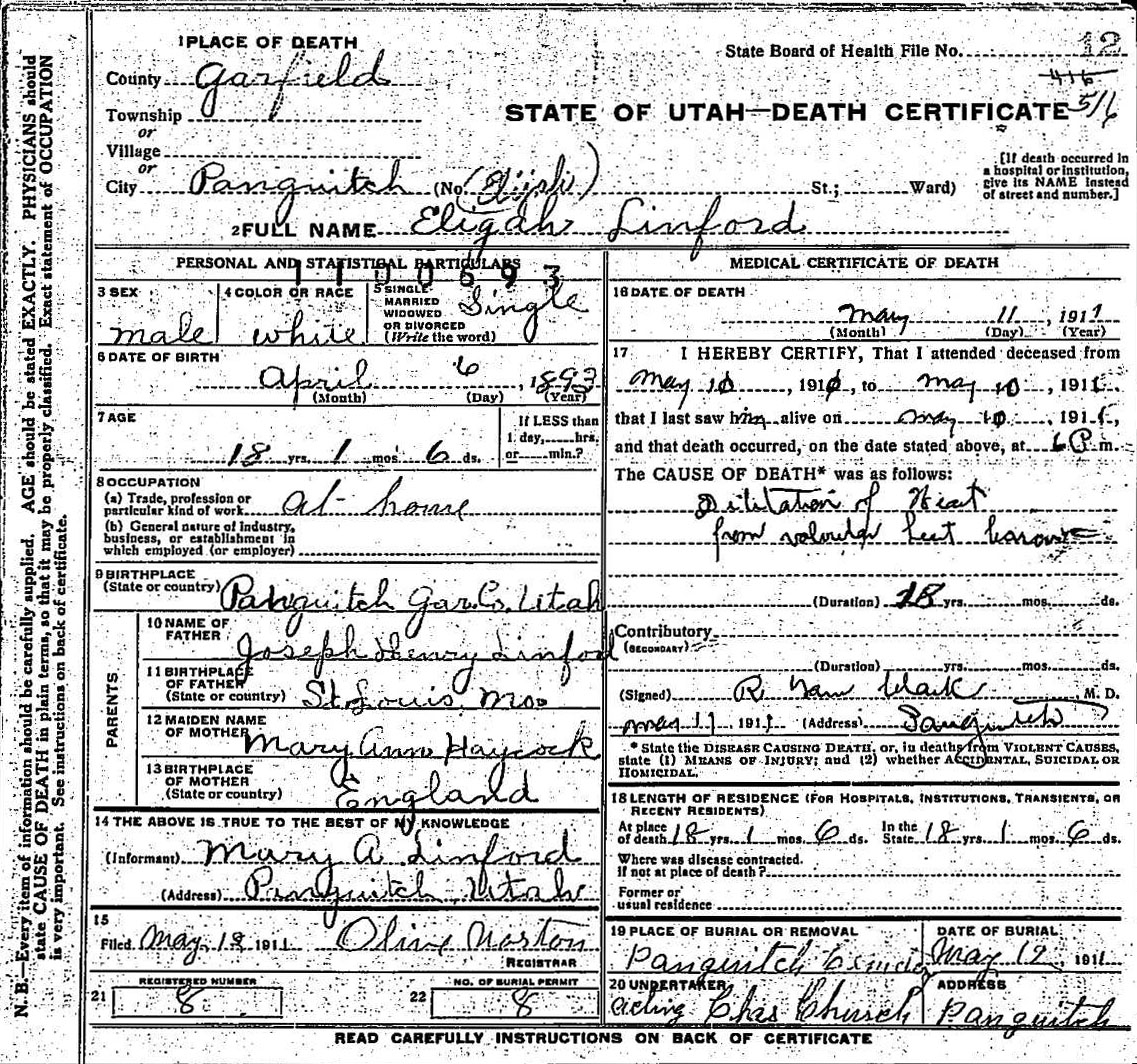 1 PLACE OF DEATH
State Board of Health File No. 12
County Garfield
416
5/6
STATE OF UTAH—DEATH CERTIFICATE
Township
or
Village
or
City Panguitch (No. St.; Ward)
[If death occurred in
a hospital or institution,
give its NAME instead
of street and number.]
2 FULL NAME Eligah Linford
PERSONAL AND STATISTICAL PARTICULARS
1100693
3 SEX
male
4 COLOR OR RACE
white
5 SINGLE
MARRIED
WIDOWED
OR DIVORCED
(Write the word)
Single
6 DATE OF BIRTH
April 6, 1893
(Month) (Day) (Year)
7 AGE
18 yrs. 1 mos. 6 ds.
If LESS than
1 day,....hrs.
or....min.?
8 OCCUPATION
(a) Trade, profession or
particular kind of work at home
(b) General nature of industry,
business, or establishment in
which employed (or employer)
9 BIRTHPLACE
(State or country) Panguitch Gar. Co. Utah
PARENTS
10 NAME OF
FATHER
Joseph Henry Linford
11 BIRTHPLACE
OF FATHER
(State or country) St Louis Mo
12 MAIDEN NAME
OF MOTHER Mary Ann Haycock
13 BIRTHPLACE
OF MOTHER
(State or country) England
14 THE ABOVE IS TRUE TO THE BEST OF MY KNOWLEDGE
(Informant) Mary A Linford
(Address) Panguitch Utah
15
Filed May 1911 Olive Norton
REGISTRAR
21 REGISTERED NUMBER
8
22 NO. OF BURIAL PERMIT
8
MEDICAL CERTIFICATE OF DEATH
16 DATE OF DEATH
May 11, 1911
(Month) (Day) (Year)
17 I HEREBY CERTIFY, That I attended deceased from
May 10, 191, to May 10, 1911.
that I last saw him alive on May 10, 1911,
and that death occurred, on the date stated above, at 6 P. m.
The CAUSE OF DEATH* was as follows:
Dilitation of Heart
from
(Duration) 18 yrs. mos. ds.
Contributory
(SECONDARY)
(Duration) yrs. mos. ds.
(Signed) R M. D.
May 11 1911 (Address) Panguitch
* State the DISEASE CAUSING DEATH, or, in deaths from VIOLENT CAUSES,
state (1) MEANS OF INJURY; and (2) whether ACCIDENTAL, SUICIDAL OR
HOMICIDAL.
18 LENGTH OF RESIDENCE (FOR HOSPITALS, INSTITUTIONS, TRANSIENTS, OR
RECENT RESIDENTS)
At place
of death 18 yrs. 1 mos. 6 ds. In the
State 18 yrs. 1 mos. 6 ds.
Where was disease contracted.
if not at place of death?
Former or
usual residence
19 PLACE OF BURIAL OR REMOVAL
Panguitch
DATE OF BURIAL
May 12, 1911
20 UNDERTAKER
acting Chas Church
ADDRESS
Panguitch
READ CAREFULLY INSTRUCTIONS ON BACK OF CERTIFICATE
N. B.—Every item of information should be carefully supplied. AGE should be stated EXACTLY. PHYSICIANS should
state CAUSE OF DEATH in plain terms, so that it may be properly classified. Exact statement of OCCUPATION
is very important. See instructions on back of certificate.